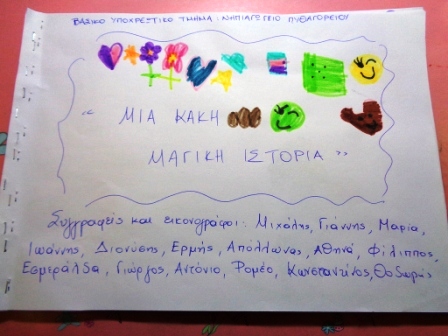 ΒΑΣΙΚΟ ΥΠΟΧΡΕΩΤΙΚΟ ΤΜΗΜΑ - ΝΗΠΙΑΓΩΓΕΙΟ ΠΥΘΑΓΟΡΕΙΟΥ
" ΜΙΑ ΚΑΚΗ
ΜΑΓΙΚΗ ΙΣΤΟΡΙΑ "
Συγγραφείς και εικονογράφοι: Μιχάλης, Γιάννης, Μαρία,
Ιωάννης, Διονύσης, Ερμής, Απόλλωνας, Αθηνά, Φίλιππος,
Εσμεράλδα, Γιώργος, Αντόνιο, Ρομέο, Κωνσταντίνος, Θοδωρής